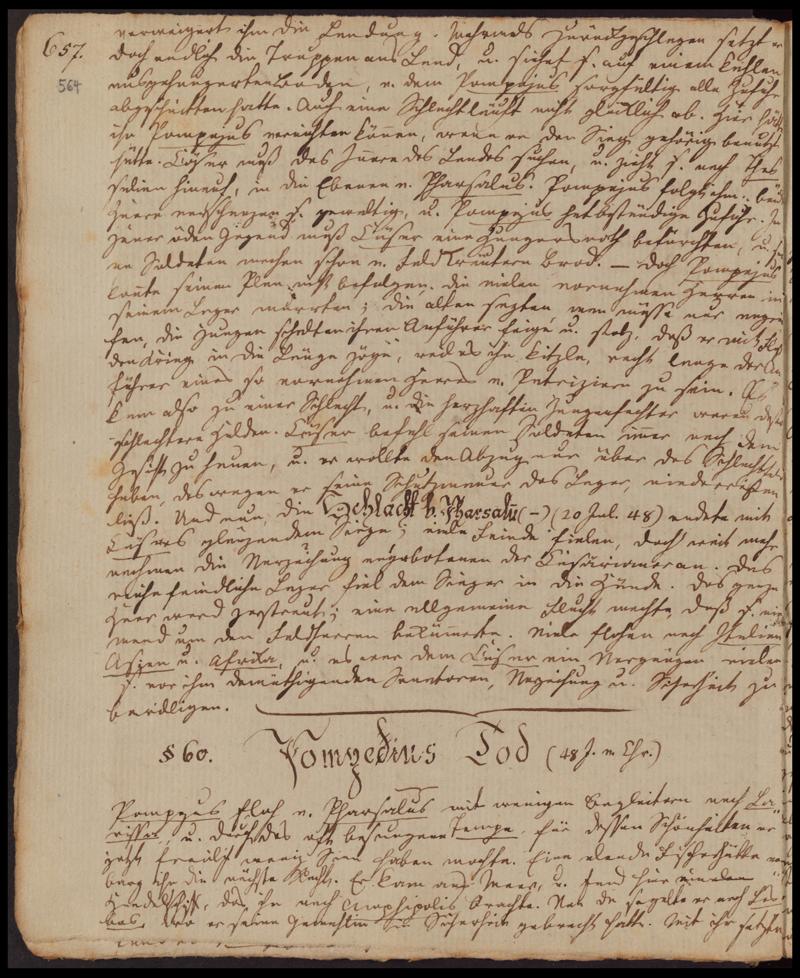 657.
564
verweigert ihm die Landung. Mehrmals zurückgeschlagen setzt er
doch endlich die Truppen ans Land, u. sieht s. auf einem kahlen
ausgehungerten Boden, v. dem Pompejus sorgfältig alle Zufuhr
abgeschnitten hatte. Auch eine Schlacht läuft nicht glücklich ab. Hier hätt
ihn Pompejus vernichten können, wenn er den Sieg gehörig benutzt
hätte. Cäsar muß das Innere des Landes suchen, u. zieht s. nach Thes
salien hinauf, in die Ebenen v. Pharsalus. Pompejus folgt ihm. beide
Heere verschanzen s. gewaltig, u. Pompejus hat beständige Zufuhr. In
jener öden Gegend muß Cäsar eine Hungersnoth befürchten, u. sei
ne Soldaten machen schon v. Feldkräutern Brod. — Doch Pompejus
konnte seinen Plan nicht befolgen. die vielen vornehmen Herren in
seinem Lager murrten; die alten sagten, man müsse nur angrei
fen, die Jungen schalten ihren Anführer feige u. stolz, daß er
den Krieg in die Länge zöge, weil es ihn kitzle, recht lange der An
führer eines so vornehmen Heeres v. Patriziern zu sein. Es
kam also zu einer Schlacht, u. die herzhaften Zungenfechter waren desto
schlechtere Helden. Cäsar befahl seinen Soldaten immer nach dem
Gesicht zu hauen, u. er wollte den Abzug nur über das Schlachtfeld
haben, deswegen er seine Schutzmauer des Lager, niederreißen
ließ. Und nun, die Schlacht b. Pharsalu (–) (20 Jul. 48) endete mit
Cäsars glänzendem Siege; viele Feinde fielen, doch weit mehr
nahmen die Verzeihung angebotenen der Cäsarianer an. Das
reiche feindliche Lager fiel dem Sieger in die Hände. Das ganze
Heer ward zerstreut; eine allgemeine Flucht machte, daß s. nie
mand um den Feldherren bekümmerte. Viele flohen nach Italien
Asien u. Afrika, u. es war dem Cäsar ein Vergnügen vielen
s. vor ihm demüthigenden Senatoren, Verzeihung u. Sicherheit zu
bewilligen.
§ 60. Pompedius Tod (48 J. v. Chr.)
Pompejus floh v. Pharsalus mit wenigen Begleitern nach La„
rissa, u. durch das oft besungene Tempe, für dessen Schönheiten er
jetzt freilich wenig Sinn haben mochte. Eine elende Fischerhütte ver
barg ihn die nächste Nacht. Er kam ans Meer, u. fand hier
Handelschiff, das ihn nach Amphipolis brachte. Von da segelte er nach Les
bos, wo er seine Gemahlin in Sicherheit gebracht hatte. Mit ihr setzte